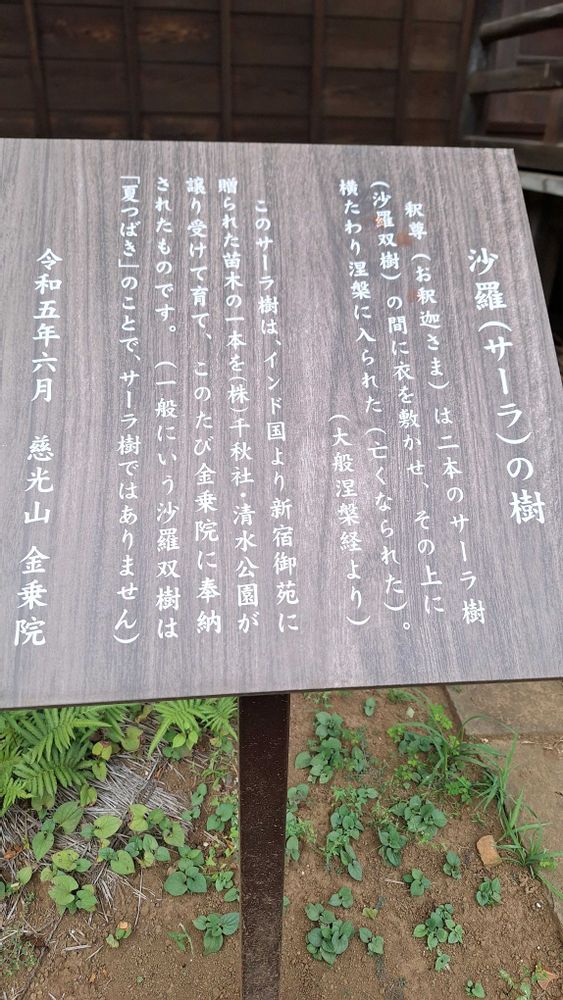 沙羅(サーラ)の樹
釈尊(お釈迦さま)は二本のサーラ樹
(沙羅双樹)の間に衣を敷かせ、その上に
横たわり涅槃に入られた(亡くなられた)。
(大般涅槃経より)
このサーラ樹は、インド国より新宿御苑に
贈られた苗木の一本を(株)千秋社・清水公園が
譲り受けて育て、このたび金乗院に奉納
されたものです。(一般にいう沙羅双樹は
「夏つばき」のことで、サーラ樹ではありません)
令和五年六月 慈光山 金乗院